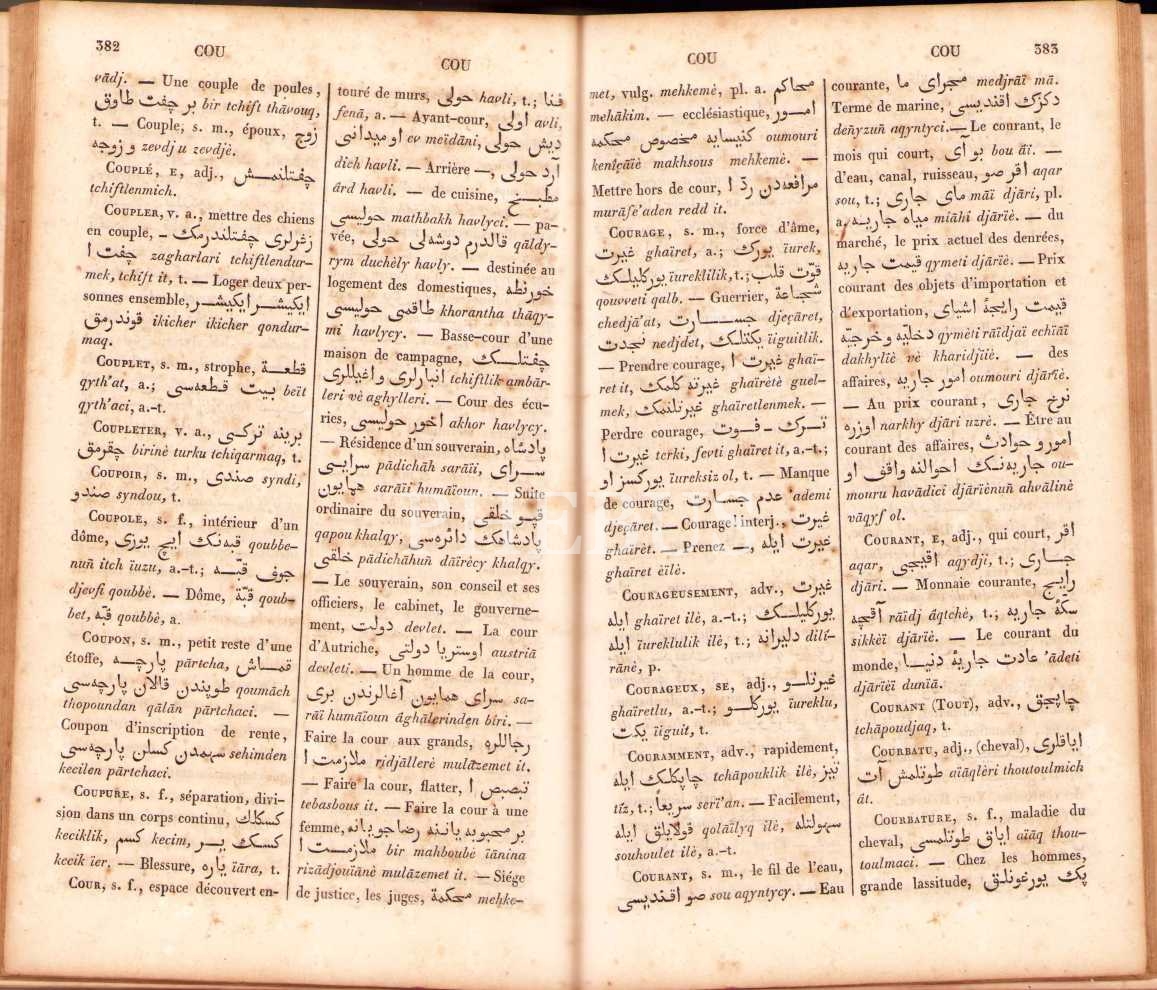 382
COU
COU
vâdj. — Une couple de poules,
بر چفت طاوق bir tchift thâvouq,
t. — Couple, s. m., époux, زوج
و زوجه zevdj u zevdjè.
COUPLÉ, E, adj., چفتلنمش
tchiftlenmich.
COUPLER, v. a., mettre des chiens
en couple, زغرلرى چفتلندرمك -
چفت ا zagharlari tchiftlendur-
mek, tchift it, t. — Loger deux per-
sonnes ensemble, ايكيشر ايكيشر
قوندرمق ikicher ikicher qondur-
maq.
COUPLET, s. m., strophe, قطعة
qyth'at, a.; بيت قطعهسى beït
qyth'aci, a.-t.
COUPLETER, v. a., برينه تركى
چقرمق birinè turku tchiqarmaq, t.
COUPOIR, s. m., صندى syndi,
صندو syndou, t.
COUPOLE, s. f., intérieur d'un
dôme, قبهنك ايچ يوزى qoubbe-
nuñ itch ïuzu, a.-t.; جوف قبه
djevfi qoubbè. — Dôme, قبّة qoub-
bet, قبّه qoubbè, a.
COUPON, s. m., petit reste d'une
étoffe, پارچه pârtcha, قماش
طوپندن قالان پارچهسى qoumâch
thopoundan qâlân pârtchaci. —
Coupon d'inscription de rente,
سهمدن كسلن پارچهسى sehimden
kecilen pârtchaci.
COUPURE, s. f., séparation, divi-
sion dans un corps continu, كسكلك
keciklik, كسم kecim, كسك ير
kecik ïer. — Blessure, ياره ïâra, t.
COUR, s. f., espace découvert en-
touré de murs, حولى havli, t.; فنا
fenâ, a. — Ayant-cour, اولى avli,
او ميدانى ev meïdâni, ديش حولى
dich havli. — Arrière —, آرد حولى
ârd havli. — de cuisine, مطبخ
حوليسى mathbakh havlyci. — pa-
vée, قالدرم دوشهلى حولى qâldy-
rym duchèly havly. — destinée au
logement des domestiques, خورنطه
طاقمى حوليسى khorantha thâqy-
mi havlycy. — Basse-cour d'une
maison de campagne, چفتلك
انبارلرى و اغيللرى tchiftlik ambâr-
leri vè aghylleri. — Cour des écu-
ries, اخور حوليسى akhor havlycy.
— Résidence d'un souverain, پادشاه
سرايى pâdichâh sarâïi, سراى
همايون sarâïi humâïoun. — Suite
ordinaire du souverain, قپو خلقى
qapou khalqy, پادشاهك دائرهسى
خلقى pâdichâhuñ dâïrècy khalqy.
— Le souverain, son conseil et ses
officiers, le cabinet, le gouverne-
ment, دولت devlet. — La cour
d'Autriche, اوستريا دولتى austriâ
devleti. — Un homme de la cour,
سراى همايون آغالرندن برى sa-
râï humâïoun âghâlerinden biri. —
Faire la cour aux grands, رجاللره
ملازمت ا ridjâllerè mulâzemet it.
— Faire la cour, flatter, تبصبص ا
tebasbous it. — Faire la cour à une
femme, بر محبوبه ياننه رضاجويانه
ملازمت ا bir mahboubè ïânina
rizâdjouïânè mulâzemet it. — Siége
de justice, les juges, محكمة mehke-
COU
COU
383
met, vulg. mehkemè, pl. a. محاكم
mehâkim. — ecclésiastique, امور
كنيسايه مخصوص محكمه oumouri
keniçâïè makhsous mehkemè. —
Mettre hors de cour, مرافعهدن ردّ ا
murâfe'aden redd it.
COURAGE, s. m., force d'âme,
غيرت ghaïret, a.; يورك ïurek,
يوركليلك ïureklilik, t.; قوّت قلب
qouvveti qalb. — Guerrier, شجاعة
chedjâ'at, جسارت djeçâret,
نجدت nedjdet, يكتلك ïiguitlik.
— Prendre courage, غيرت ا ghaï-
ret it, غيرته كلمك ghaïretè guel-
mek, غيرتلنمك ghaïretlenmek. —
Perdre courage, ترك - فوت
غيرت ا terki, fevti ghaïret it, a.-t.;
يوركسز او ïureksiz ol, t. — Manque
de courage, عدم جسارت 'ademi
djeçâret. — Courage! interj., غيرت
ghaïrèt. — Prenez —, غيرت ايله
ghaïret èïlè.
COURAGEUSEMENT, adv., غيرت
ايله ghaïret ilè, a.-t.; يوركليلك
ايله ïureklulik ilè, t.; دليرانه dilî-
rânè, p.
COURAGEUX, SE, adj., غيرتلو
ghaïretlu, a.-t.; يوركلو ïureklu,
يكت ïiguit, t.
COURAMMENT, adv., rapidement,
چاپكلك ايله tchâpouklik ilè, تيز
tîz, t.; سريعاً serî'an. — Facilement,
قولايلق ايله qolâïlyq ilè, سهولتله
souhoulet ilè, a.-t.
COURANT, s. m., le fil de l'eau,
صو اقنديسى sou aqyntycy. — Eau
courante, مجراى ما medjrâï mâ.
Terme de marine, دكزك اقنديسى
deñyzuñ aqyntyci. — Le courant, le
mois qui court, بو آى bou âï. —
d'eau, canal, ruisseau, اقر صو aqar
sou, t.; ماى جارى mâï djâri, pl.
a. مياه جاريه miâhi djârïè. — du
marché, le prix actuel des denrées,
قيمت جاريه qymeti djârïè. — Prix
courant des objets d'importation et
d'exportation, قيمت رايجهٔ اشياى
دخليّه و خرجيّه qymèti râïdjaï echïâï
dakhylïè vè kharidjïïè. — des
affaires, امور جاريه oumouri djârïè.
— Au prix courant, نرخ جارى
اوزره narkhy djâri uzrè. — Être au
courant des affaires, امور و حوادث
جاريهنك احوالنه واقف او ou-
mouru havâdici djârïènuñ ahvâlinè
vâqyf ol.
COURANT, E, adj., qui court, اقر
aqar, اقيجى aqydji, t.; جارى
djâri. — Monnaie courante, رايج
آقچه râïdj âqtchè, t.; سكّهٔ جاريه
sikkèï djârïè. — Le courant du
monde, عادت جاريهٔ دنيا 'âdeti
djârïèï dunïâ.
COURANT (TOUT), adv., چاپجق
tchâpoudjaq, t.
COURBATU, adj., (cheval), اياقلرى
طوتلمش آت aïâqlèri thoutoulmich
ât.
COURBATURE, s. f., maladie du
cheval, اياق طوتلمسى aïâq thou-
toulmaci. — Chez les hommes,
grande lassitude, پك يورغونلق